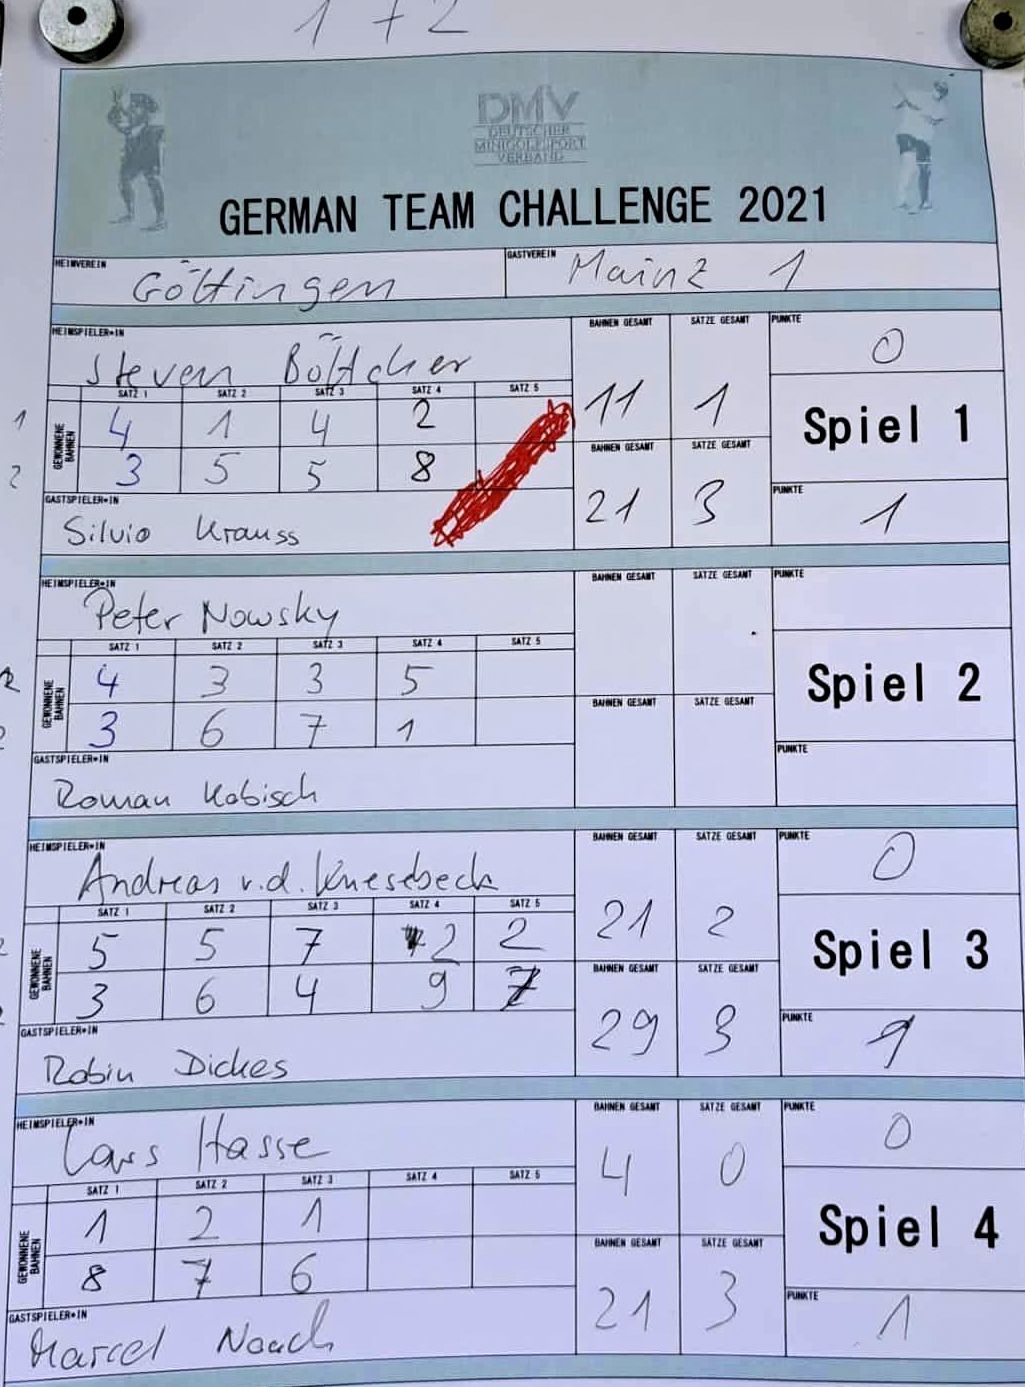 1 + 2
DMV
DEUTSCHER
MINIGOLFSPORT
VERBAND
GERMAN TEAM CHALLENGE 2021
HEIMVEREIN Göttingen GASTVEREIN Mainz 1
HEIMSPIELER*IN BAHNEN GESAMT SÄTZE GESAMT PUNKTE
Steven Böttcher 0
SATZ 1 SATZ 2 SATZ 3 SATZ 4 SATZ 5
1 GEWONNENE BAHNEN 4 1 4 2 11 1 Spiel 1
BAHNEN GESAMT SÄTZE GESAMT
2 3 5 5 8
GASTSPIELER*IN PUNKTE
Silvio Krauss 21 3 1
HEIMSPIELER*IN BAHNEN GESAMT SÄTZE GESAMT PUNKTE
Peter Nowsky
SATZ 1 SATZ 2 SATZ 3 SATZ 4 SATZ 5
GEWONNENE BAHNEN 4 3 3 5 Spiel 2
BAHNEN GESAMT SÄTZE GESAMT
3 6 7 1
GASTSPIELER*IN PUNKTE
Roman Kobisch
HEIMSPIELER*IN BAHNEN GESAMT SÄTZE GESAMT PUNKTE
Andreas v.d. Knesebeck 0
SATZ 1 SATZ 2 SATZ 3 SATZ 4 SATZ 5
GEWONNENE BAHNEN 5 5 7 2 2 21 2 Spiel 3
BAHNEN GESAMT SÄTZE GESAMT
3 6 4 9 7
GASTSPIELER*IN PUNKTE
Robin Dickes 29 3 1
HEIMSPIELER*IN BAHNEN GESAMT SÄTZE GESAMT PUNKTE
Lars Hasse 4 0 0
SATZ 1 SATZ 2 SATZ 3 SATZ 4 SATZ 5
GEWONNENE BAHNEN 1 2 1 Spiel 4
BAHNEN GESAMT SÄTZE GESAMT
8 7 6
GASTSPIELER*IN PUNKTE
Marcel Noack 21 3 1